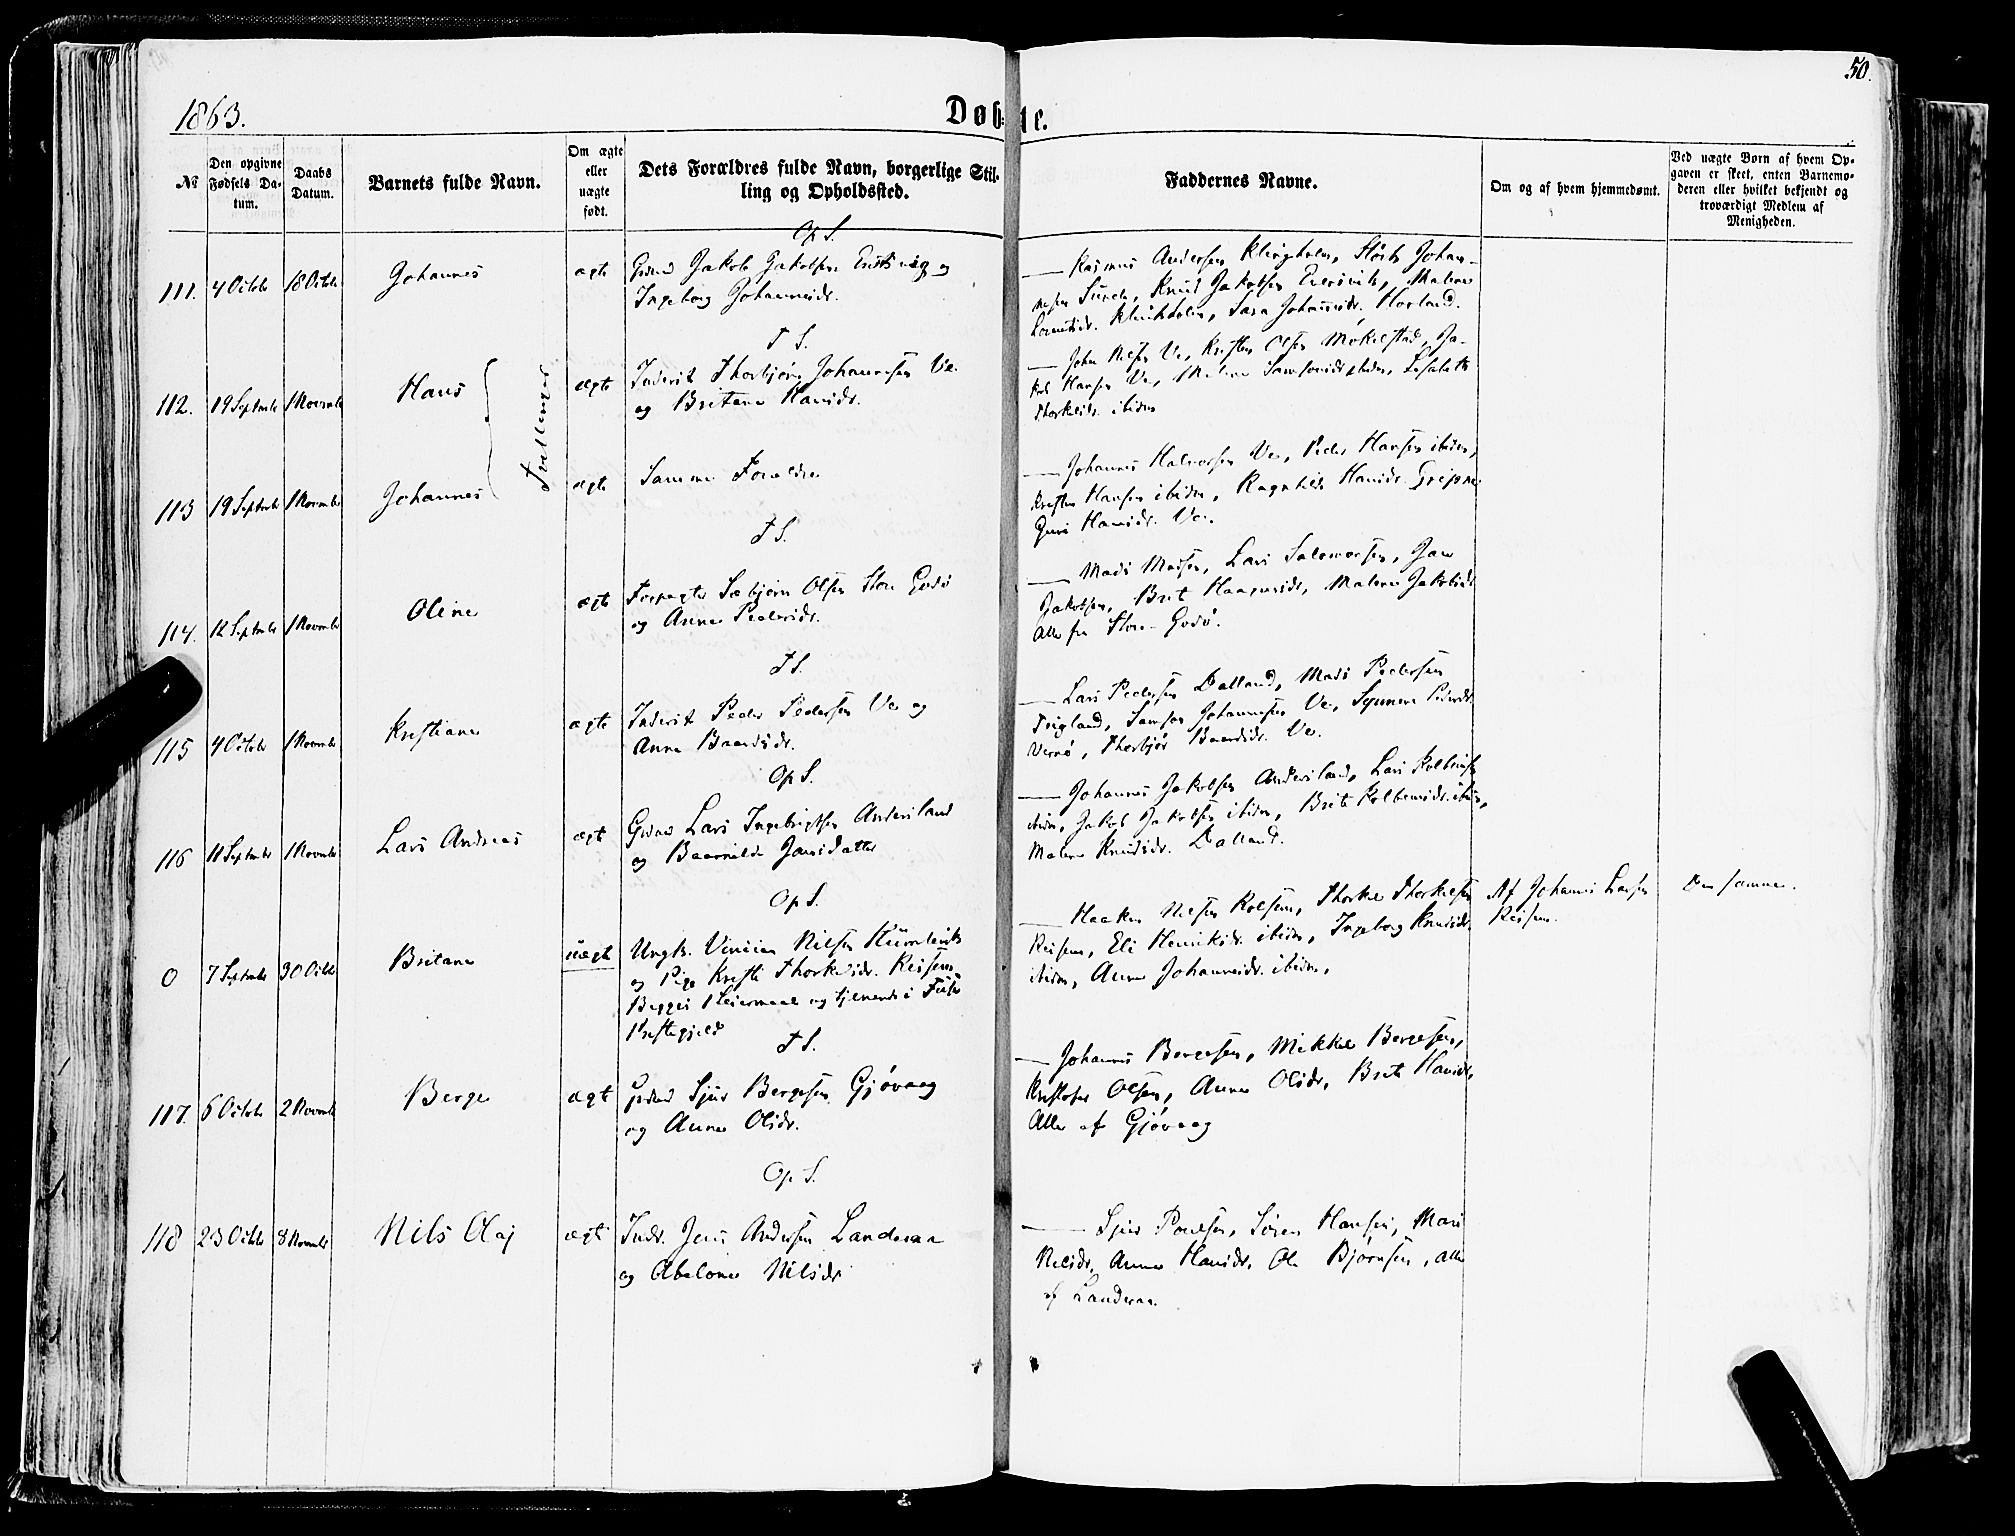 50.
1863.
Døbte.
№
Den opgivne Fødsels Datum.
Daabs Datum.
Barnets fulde Navn.
Om ægte eller uægte født.
Dets Forældres fulde Navn, borgerlige Stilling og Opholdssted.
Faddernes Navne.
Om og af hvem hjemmedøbt.
Ved uægte Børn af hvem Opgaven er skeet, enten Barnemoderen eller hvilket bekjendt og troværdigt Medlem af Menigheden.
Op S.
111. 4 Octob 18 Octob Johannes ægte Gmd Jakob Jakobsen og
Ingeborg Johannesdr.
Rasmus Andersen Klingholm, Johan-
nesen Sunde, Knud Jakobsen Malene
Sara Johannesdr. Horland.
T S.
112. 19 Septembr 1 Novembr Hans ægte Inderst Thorbjørn Johannesen Ve
og Britane Hansdr.
Tvillinger
John Nilsen Ve, Kristen Olsen Møkelstad, Ja-
kob Hansen Ve, Malene ibidem, Lisabeth
Thorkelsdr. ibidem
113 19 Septembr 1 Novembr Johannes ægte Samme Forældre
Johannes Halvorsen Ve, Peder Hansen ibidem,
Kristen Hansen ibidem, Ragnhild Hansdr.
Guri Hansdr. Ve.
T S.
114. 12 Septembr 1 Novembr Oline ægte Forpagter Sæbjørn Olsen Store Godø
og Anna Pedersdr.
Mads Madsen, Lars Salomonsen, Jan
Jakobsen, Brit Haagensdr, Malene Jakobsdr
Alle fra Store-Godø.
T S.
115 4 Octob 1 Novembr Kristiane ægte Inderst Peder Pedersen Ve og
Anna Baardsdr.
Lars Pedersen Dalland, Mads Pedersen
Tvigland, Samson Johannesen Ve, Synneve Pedersdr.
Vernø, Thorbjør Baardsdr. Ve.
Op S.
116 11 Septembr 1 Novembr Lars Andreas ægte Gmd Lars Ingebrigtsen Andersland
og Baarnilde Jansdatter
Johannes Jakobsen Andersland, Lars Kolbensen
ibidem, Jakob Jakobsen ibidem, Brite Kolbensdr. ibidem,
Malene Knudsdr. Dalland.
Op S.
0 7 Septembr 30 Octob Britane uægt Ungk. Nilsen
og Pige Kristi Thorkelsdr. Reisem
Begges Leiermaal og tjenende i
Præstegjeld
Haakon Nilsen Rolsem, Thorkel Thorkelsen
Reisem, Eli Henriksdr. ibidem, Ingeborg Knudsdr.
ibidem, Anna Johannesdr. ibidem,
Af Johannes Larsen
Reisem.
Den samme.
T S.
117. 6 Octob 2 Novembr Berge ægt Gmd Sjur Bergesen Gjøvaag
og Anna Olsdr.
Johannes Bergesen, Mikkel Bergesen,
Kristofer Olsen, Anna Olsdr, Brite Hansdr,
Alle af Gjøvaag
Op S.
118 23 Octob 8 Novembr Nils Olaj ægt Inds. Jens Andersen Landeraa
og Abelone Nilsdr
Sjur Poulsen, Søren Hansen, Mari
Nilsdr, Anna Hansdr, Ole Bjørnsen, alle
af Landeraa.